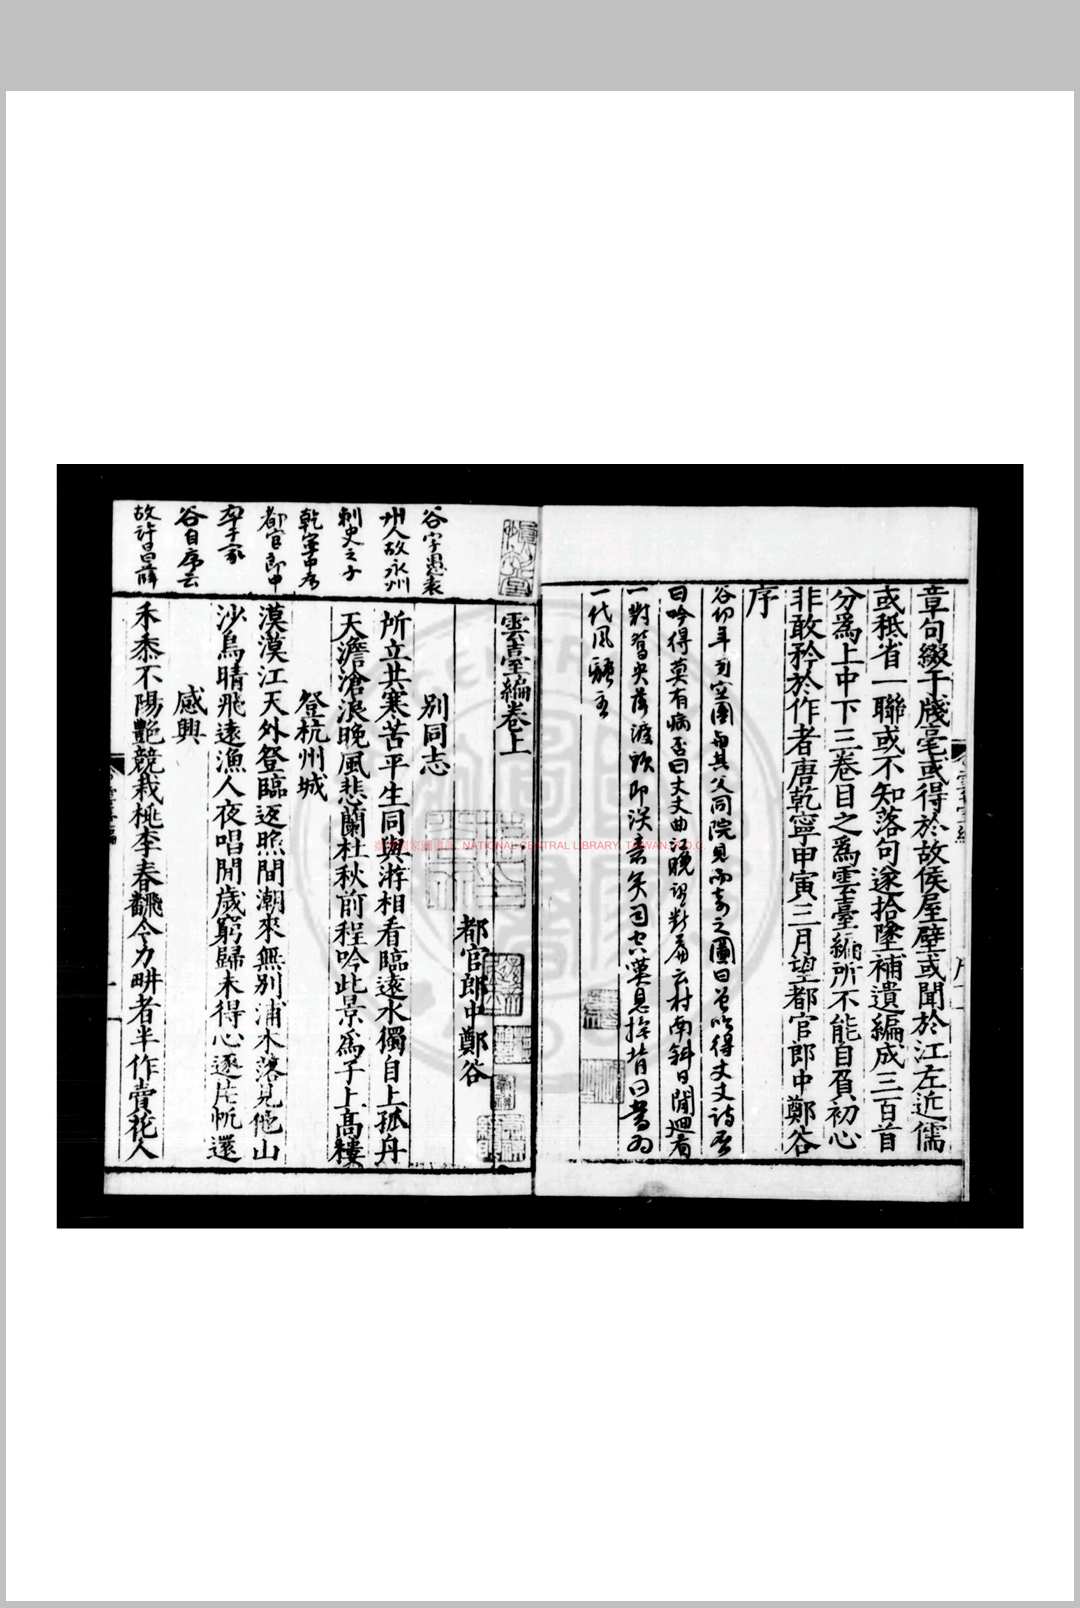 章句綴于牋毫或得於故侯屋壁或聞於江左近儒
或秪省一聯或不知落句遂拾墜補遺編成三百首
分為上中下三卷目之為雲臺編所不能自負初心
非敢矜於作者唐乾寧甲寅三月望都官郎中鄭谷
序
谷幼年司空圖與其父同院見而奇之圖曰曾吟得丈丈詩否
曰吟得莫有病否曰丈丈曲江晚望斷篇云村南斜日閒迴首
一對鴛央落渡頭即深意矣司空嘆息撫背曰當為
一代風騷主
雲臺編卷上
都官郎中鄭谷
別同志
所立共寒苦平生同與游相看臨遠水獨自上孤舟
天澹滄浪晚風悲蘭杜秋前程吟此景為子上高樓
登杭州城
漠漠江天外登臨返照間潮來無別浦木落見他山
沙鳥晴飛遠漁人夜唱閒歲窮歸未得心逐片帆還
感興
禾黍不陽艷競栽桃李春翻令力畊者半作賣花人
谷字愚
州人故永州
刺史之子
乾寧中為
都官郎中
卒于家
谷自序云
故許昌薛
臺灣國家圖書館, NATIONAL CENTRAL LIBRARY, TAIWAN, R.O.C.